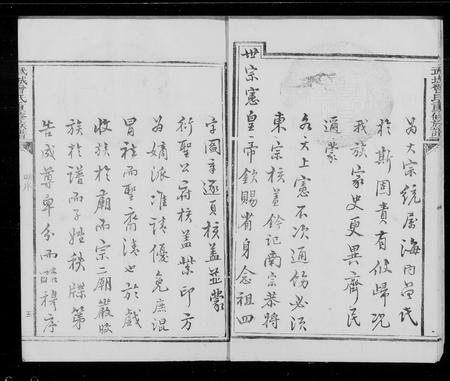 為大宗統屬海內曾氏
於斯罔貴有攸歸況
我族家史更異齊民
適蒙
各大上憲不次通飭必須
東宗核蓋鈐記南宗恭將
世宗憲皇帝欽賜省身念祖四
字圖章逐頁核蓋並蒙
衍聖公府核蓋紫印方
為嫡派准請優免庶混
冒祛而聖裔清也於戲
收族於廟而宗二廟嚴昭
族於譜而子姓秩牒第
告成尊卑分而昭穆序
五